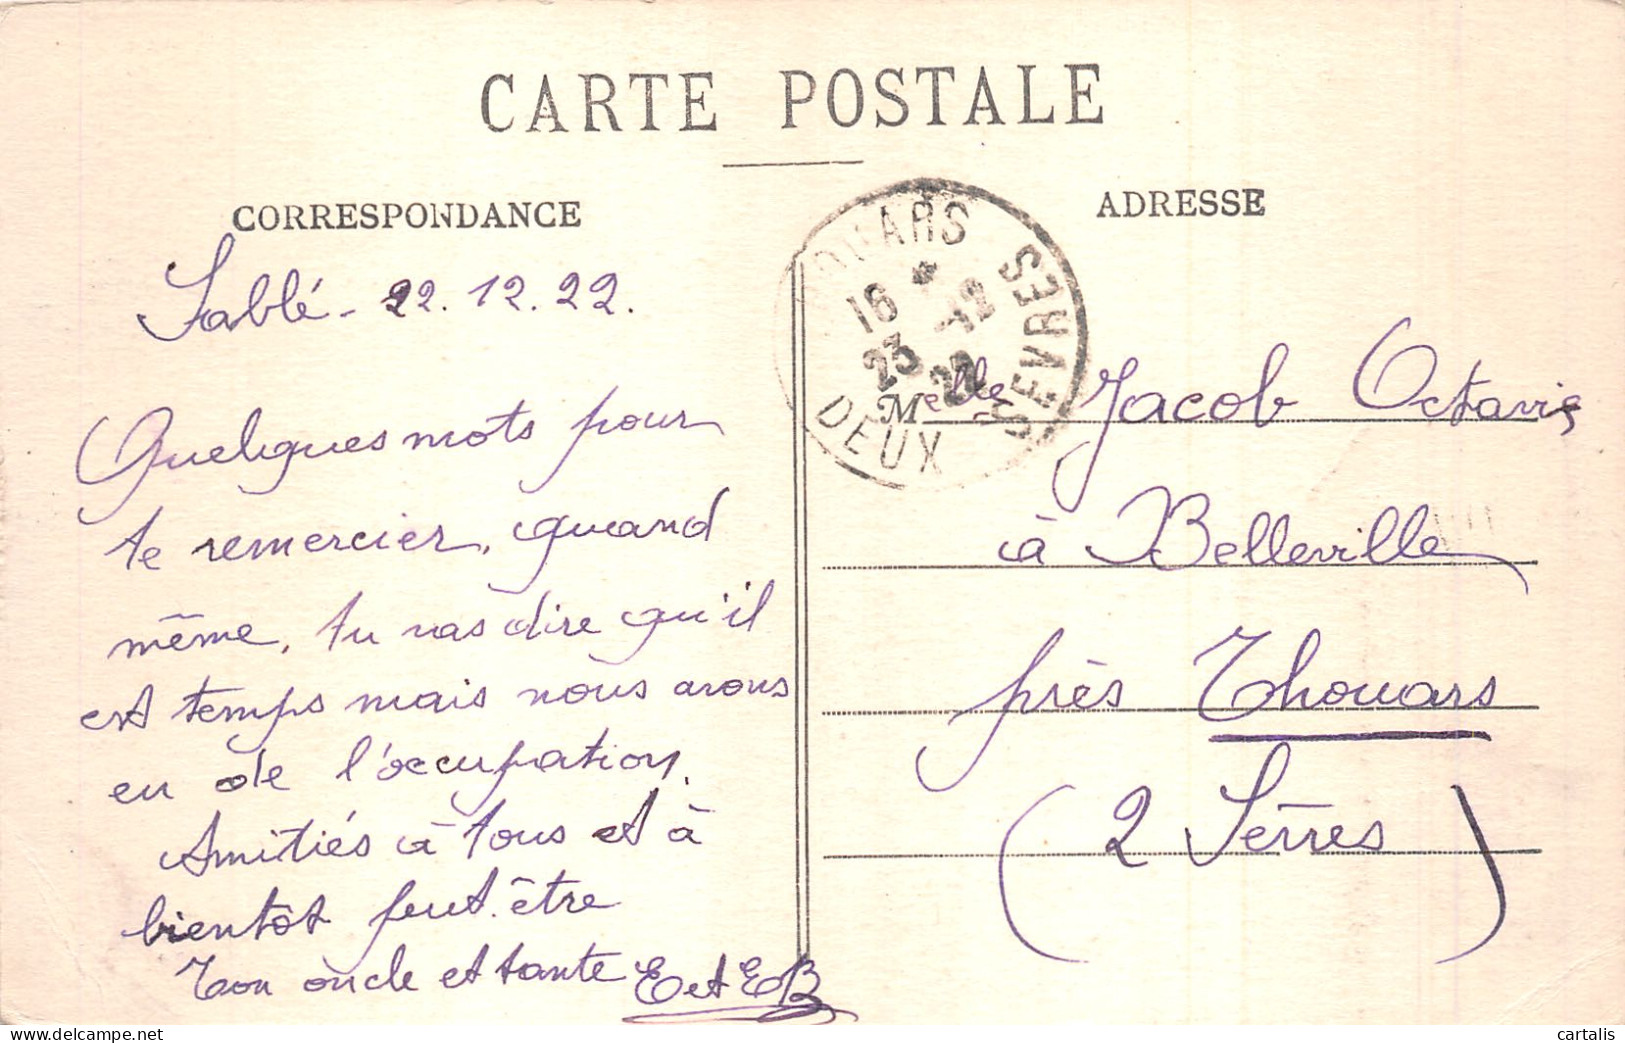 CARTE POSTALE
CORRESPONDANCE
Sablé - 22.12.22.
Quelques mots pour
te remercier, quand
même, tu vas dire qu'il
est temps mais nous avons
eu de l'occupation.
Amitiés à tous et à
bientôt peut-être
Ton oncle et tante E et EB
THOUARS
DEUX SEVRES
16 * 23 -12 22
ADRESSE
Melle Jacob Octavie
à Belleville
près Thouars
(2 Sèvres)
cartalis